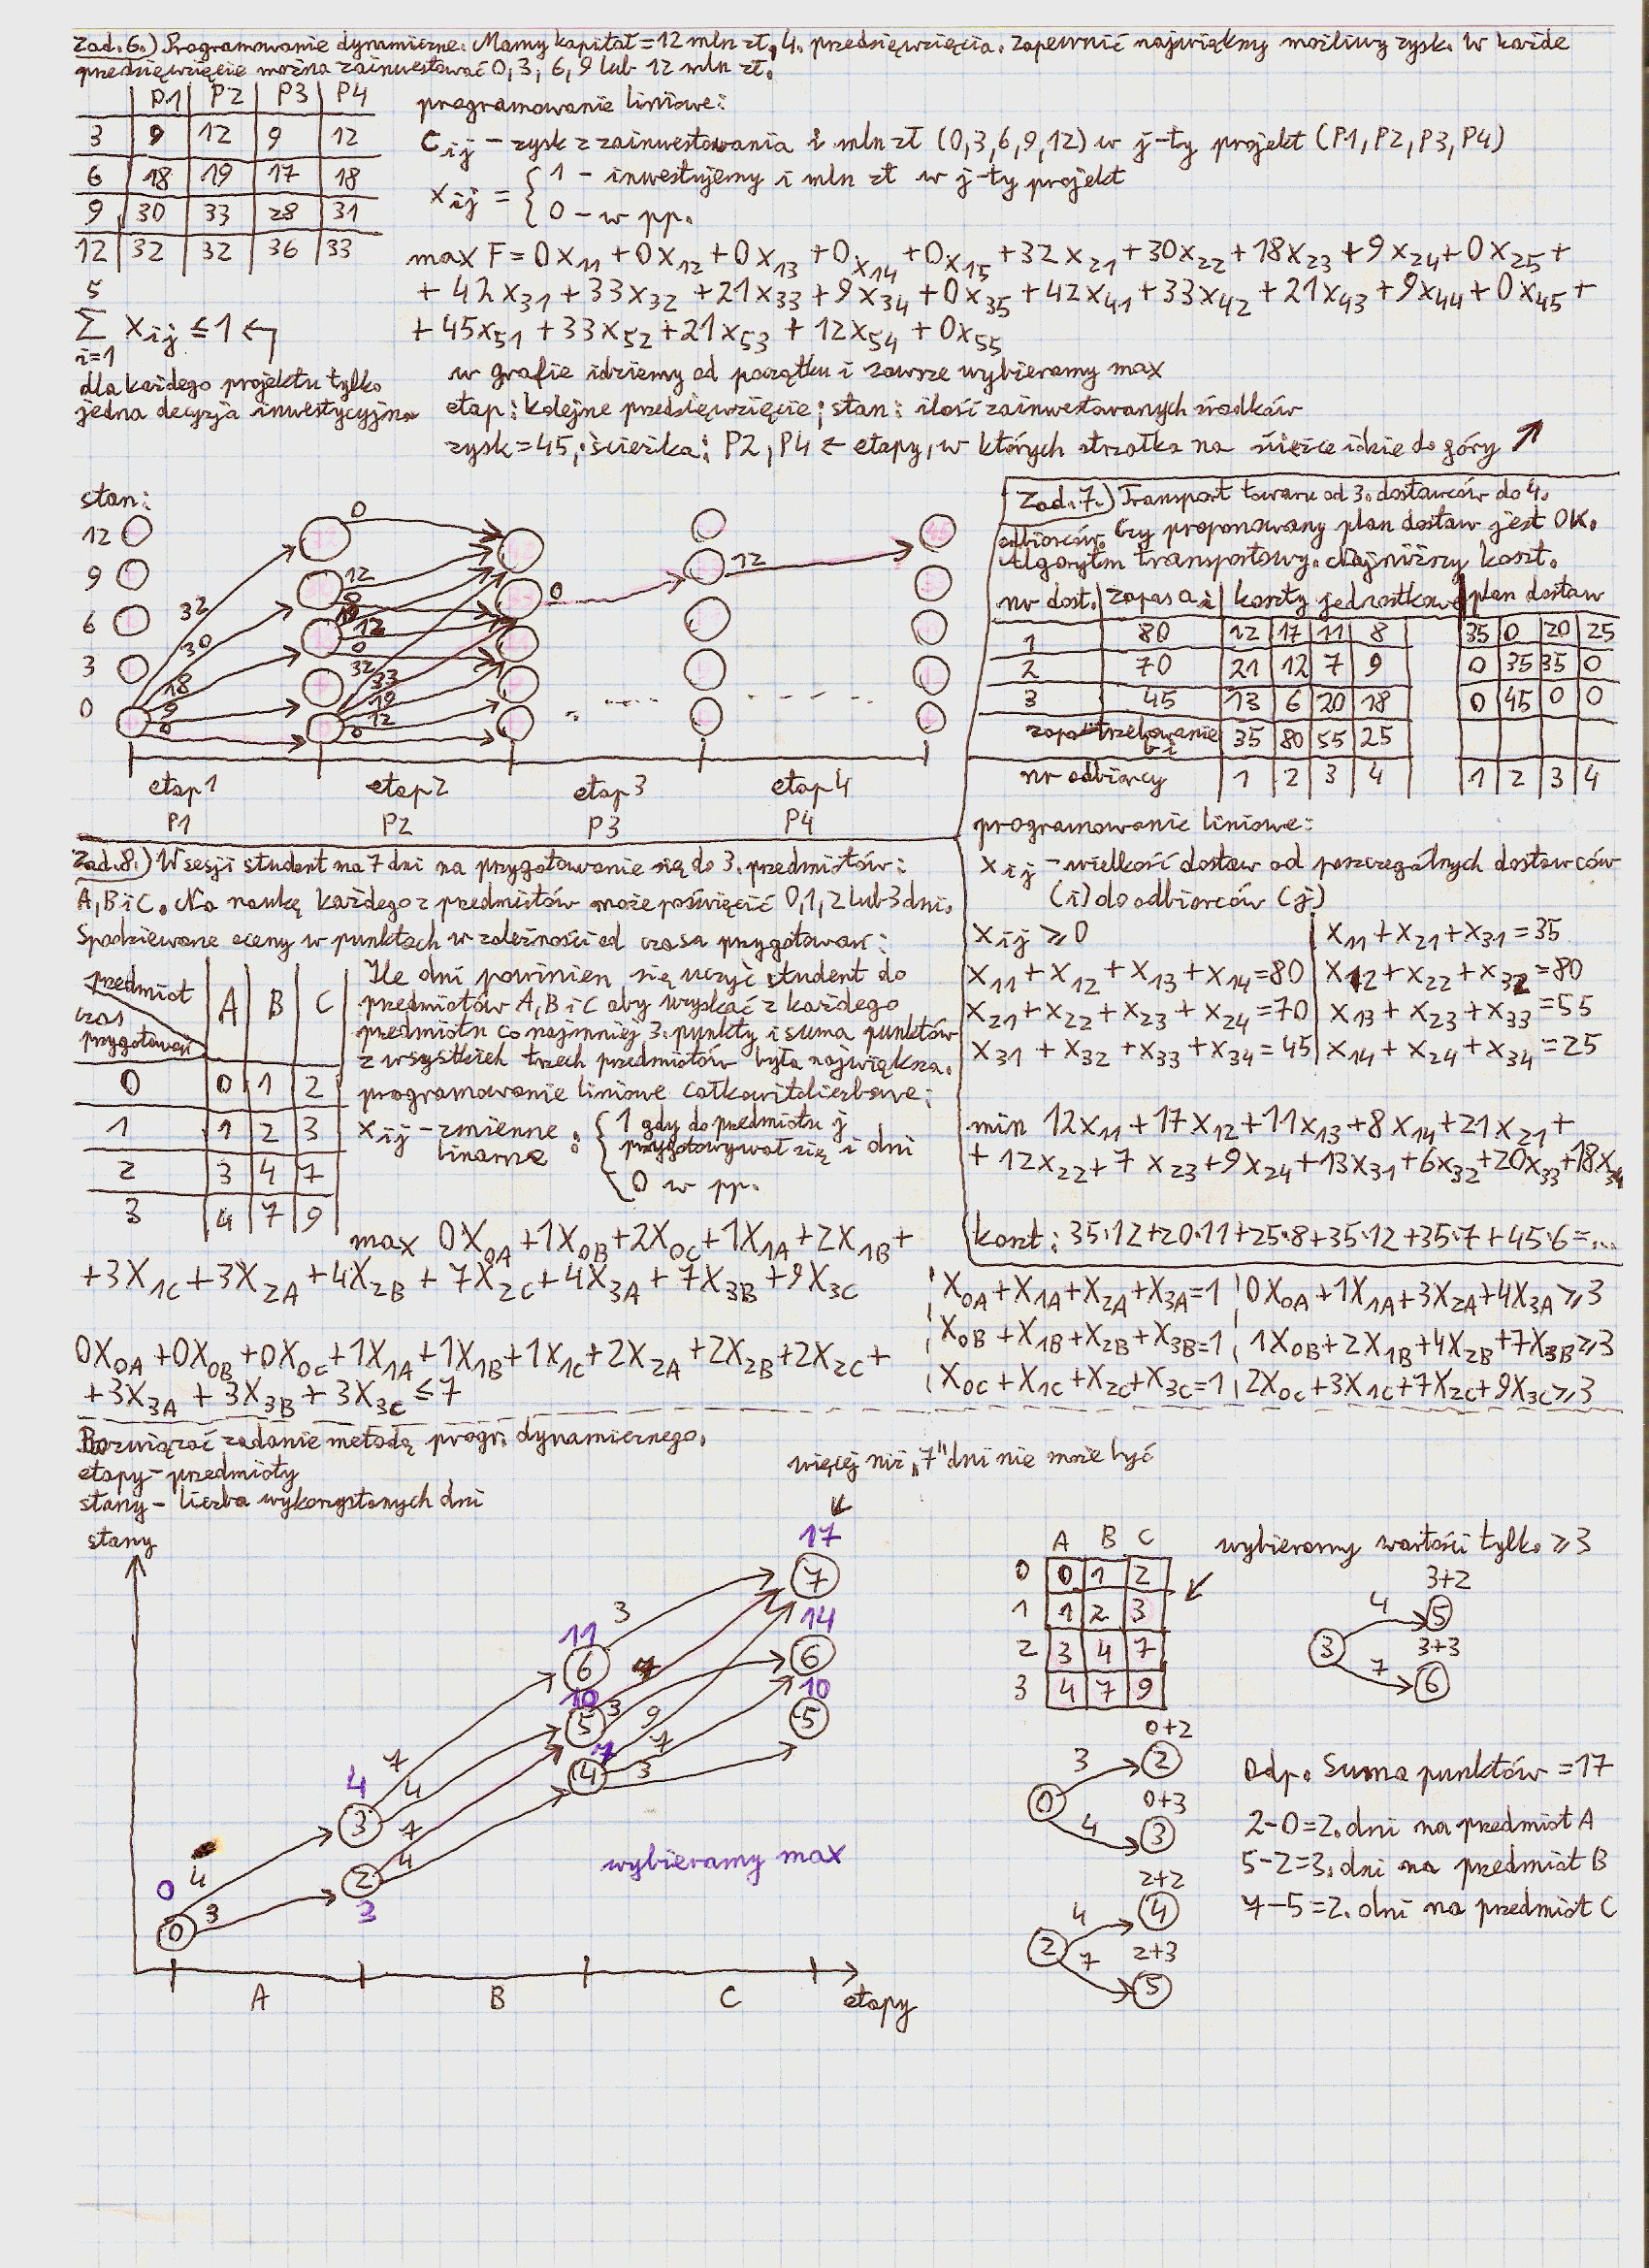 Zad. 6.) Programowanie dynamiczne. Mamy kapitał = 12 mln zł, 4. przedsięwzięcia. Zapewnić największy możliwy zysk. W każde
przedsięwzięcie można zainwestować 0, 3, 6, 9 lub 12 mln zł.
P1 P2 P3 P4
3 9 12 9 12
6 18 19 17 18
9 30 33 28 31
12 32 32 36 33
programowanie liniowe:
c_ij – zysk z zainwestowania i mln zł (0,3,6,9,12) w j-ty projekt (P1, P2, P3, P4)
x_ij = { 1 – inwestujemy i mln zł w j-ty projekt
0 – w pp.
max F = 0x11 + 0x12 + 0x13 + 0x14 + 0x15 + 32x21 + 30x22 + 18x23 + 9x24 + 0x25 +
+ 42x31 + 33x32 + 21x33 + 9x34 + 0x35 + 42x41 + 33x42 + 21x43 + 9x44 + 0x45 +
+ 45x51 + 33x52 + 21x53 + 12x54 + 0x55
5
Σ x_ij ≤ 1 ↵
i=1
dla każdego projektu tylko
jedna decyzja inwestycyjna
w grafie idziemy od początku i zawsze wybieramy max
etap: kolejne przedsięwzięcie; stan: ilość zainwestowanych środków
zysk = 45, ścieżka: P2, P4 ← etapy, w których strzałka na ścieżce idzie do góry ↗
stan:
12
9
6
3
0
32 30 18 9 0
0 12 0 19 12 0 32 33 19 12 0
0
12
etap 1 etap 2 etap 3 etap 4
P1 P2 P3 P4
Zad. 7.) Transport towaru od 3. dostawców do 4.
odbiorców. Czy proponowany plan dostaw jest OK.
Algorytm transportowy. Najniższy koszt.
nr dost. zapas a_i koszty jednostkowe plan dostaw
1 80 12 17 11 8 35 0 20 25
2 70 21 12 7 9 0 35 35 0
3 45 13 6 20 18 0 45 0 0
zapotrzebowanie b_i 35 80 55 25
nr odbiorcy 1 2 3 4 1 2 3 4
programowanie liniowe:
x_ij – wielkość dostaw od poszczególnych dostawców
(i) do odbiorców (j)
x_ij ≥ 0
x11 + x12 + x13 + x14 = 80
x21 + x22 + x23 + x24 = 70
x31 + x32 + x33 + x34 = 45
x11 + x21 + x31 = 35
x12 + x22 + x32 = 80
x13 + x23 + x33 = 55
x14 + x24 + x34 = 25
min 12x11 + 17x12 + 11x13 + 8x14 + 21x21 +
+ 12x22 + 7x23 + 9x24 + 13x31 + 6x32 + 20x33 + 18x34
koszt: 35·12+20·11+25·8+35·12+35·7+45·6=...
Zad. 8.) W sesji student ma 7 dni na przygotowanie się do 3. przedmiotów:
A, B i C. Na naukę każdego z przedmiotów może poświęcić 0, 1, 2 lub 3 dni.
Spodziewane oceny w punktach w zależności od czasu przygotowań:
przedmiot
czas
przygotowań
A B C
0 0 1 2
1 1 2 3
2 3 4 7
3 4 7 9
Ile dni powinien się uczyć student do
przedmiotów A, B i C aby uzyskać z każdego
przedmiotu co najmniej 3. punkty i suma punktów
z wszystkich trzech przedmiotów była największa.
programowanie liniowe całkowitoliczbowe:
x_ij – zmienne binarne : { 1 gdy do przedmiotu j
przygotowywał się i dni
0 w pp.
max 0X0A + 1X0B + 2X0C + 1X1A + 2X1B +
+ 3X1C + 3X2A + 4X2B + 7X2C + 4X3A + 7X3B + 9X3C
0X0A + 0X0B + 0X0C + 1X1A + 1X1B + 1X1C + 2X2A + 2X2B + 2X2C +
+ 3X3A + 3X3B + 3X3C ≤ 7
X0A + X1A + X2A + X3A = 1
X0B + X1B + X2B + X3B = 1
X0C + X1C + X2C + X3C = 1
0X0A + 1X1A + 3X2A + 4X3A ≥ 3
1X0B + 2X1B + 4X2B + 7X3B ≥ 3
2X0C + 3X1C + 7X2C + 9X3C ≥ 3
Rozwiązać zadanie metodą progr. dynamicznego.
etapy – przedmioty
stany – liczba wykorzystanych dni
więcej niż „7" dni nie może być
stany
17
7
14
6
10
5
11
6
10
5
7
4
4
3
2
3
0
0
4 3
7 4 7 4
3 7 3 9 7 3
wybieramy max
A B C etapy
A B C
0 0 1 2
1 1 2 3
2 3 4 7
3 4 7 9
wybieramy wartości tylko ≥ 3
3+2
3 4 5
3+3
7 6
0+2
0 3 2
0+3
4 3
2+2
2 4 4
2+3
7 5
Odp. Suma punktów = 17
2–0=2. dni na przedmiot A
5–2=3. dni na przedmiot B
7–5=2. dni na przedmiot C